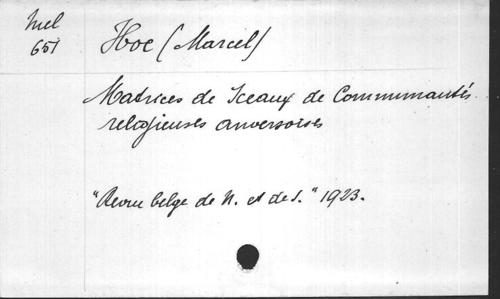 Mel
651
Hoc (Marcel)
Matrices de Sceaux de Communautés
religieuses anversoises
"Revue belge de N. et de S." 1923.